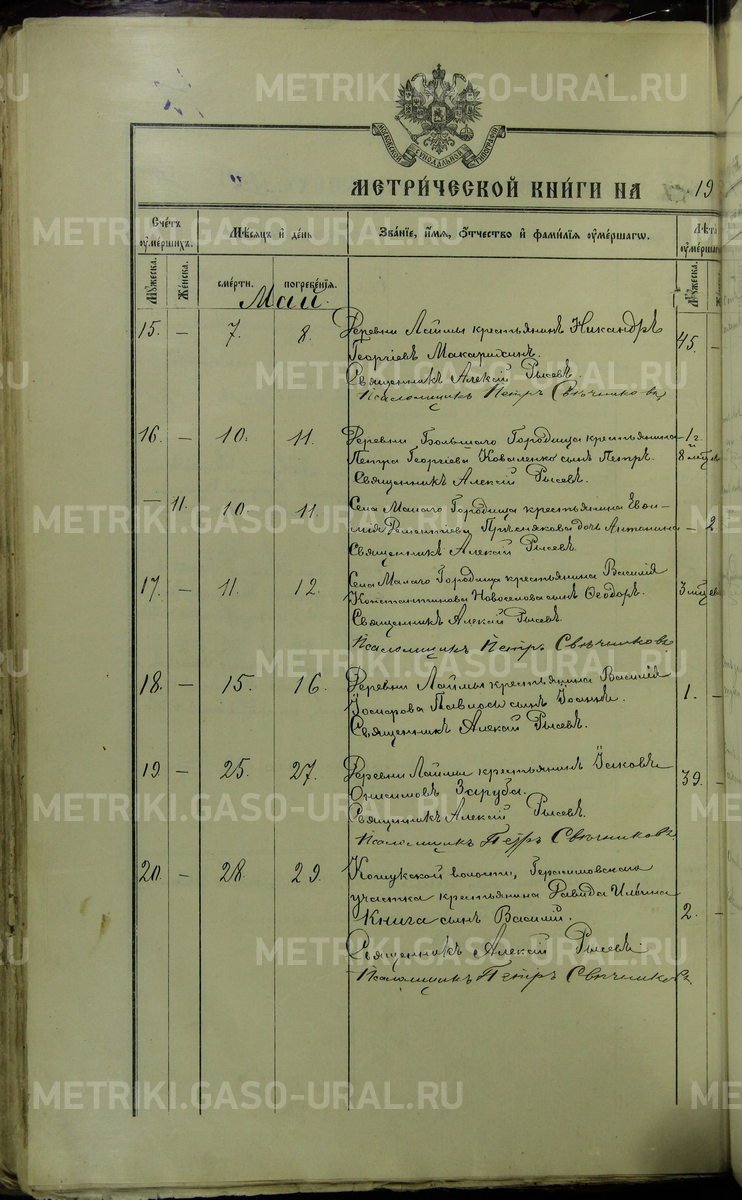 МОСКОВСКОЙ СѴНОДАЛЬНОЙ ТИПОГРАФІИ
МЕТРИ́ЧЕСКОЙ КНИ́ГИ НА 19
Сче́тъ ᲂу҆ме́ршихъ.
Мѣ́сяцъ и҆ де́нь
Зва́нїе, и҆́мя, ѻ҆́тчество и҆ фами́лїя ᲂу҆ме́ршагѡ.
Лѣта ᲂу҆ме́ршаг
Мꙋ́жеска.
Же́нска.
сме́рти.
погребе́нїя.
Мꙋ́жеска.
Май.
15. — 7. 8. Деревни Лаймы крестьянинъ Никандръ 45. —
Георгіевъ Макарихинъ.
Священникъ Алексій Рысевъ.
Псаломщикъ Петръ Свѣчниковъ
16. — 10. 11. Деревни Большаго Городища крестьянина 1 г.
Петра Георгіева Коваленко сынъ Петръ. 8 мѣцев
Священникъ Алексій Рысевъ.
— 11. 10. 11. Села Малаго Городища крестьянина Евѳи-
мія Приснякова дочь Антонина — 2
Священникъ Алексій Рысевъ
17. — 11. 12. Села Малаго Городища крестьянина Василія
Константинова Новоселова сынъ Ѳеодоръ. 3 мѣцев
Священникъ Алексій Рысевъ.
Псаломщикъ Петръ Свѣчниковъ
18. — 15. 16. Деревни Лаймы крестьянина Василія 1. —
Павлось сынъ Іоаннъ.
Священникъ Алексій Рысевъ.
19 — 25. 27. Деревни Лаймы крестьянинъ Іаковъ 39. —
Онисимовъ Заруба.
Священникъ Алексій Рысевъ.
Псаломщикъ Петръ Свѣчниковъ
20. — 28. 29. Кошукской волости, Герасимовскаго
участка крестьянина Давида Ильина
Книга сынъ Василій. 2. —
Священникъ Алексій Рысевъ.
Псаломщикъ Петръ Свѣчниковъ.
METRIKI.GASO-URAL.RU